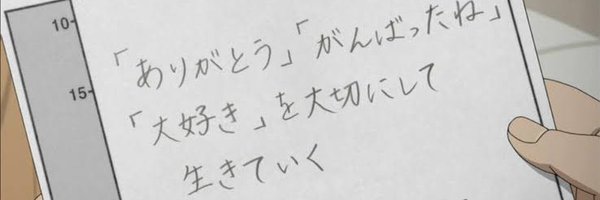 10-
「ありがとう」「がんばったね」
15-
「大好き」を大切にして
生きていく